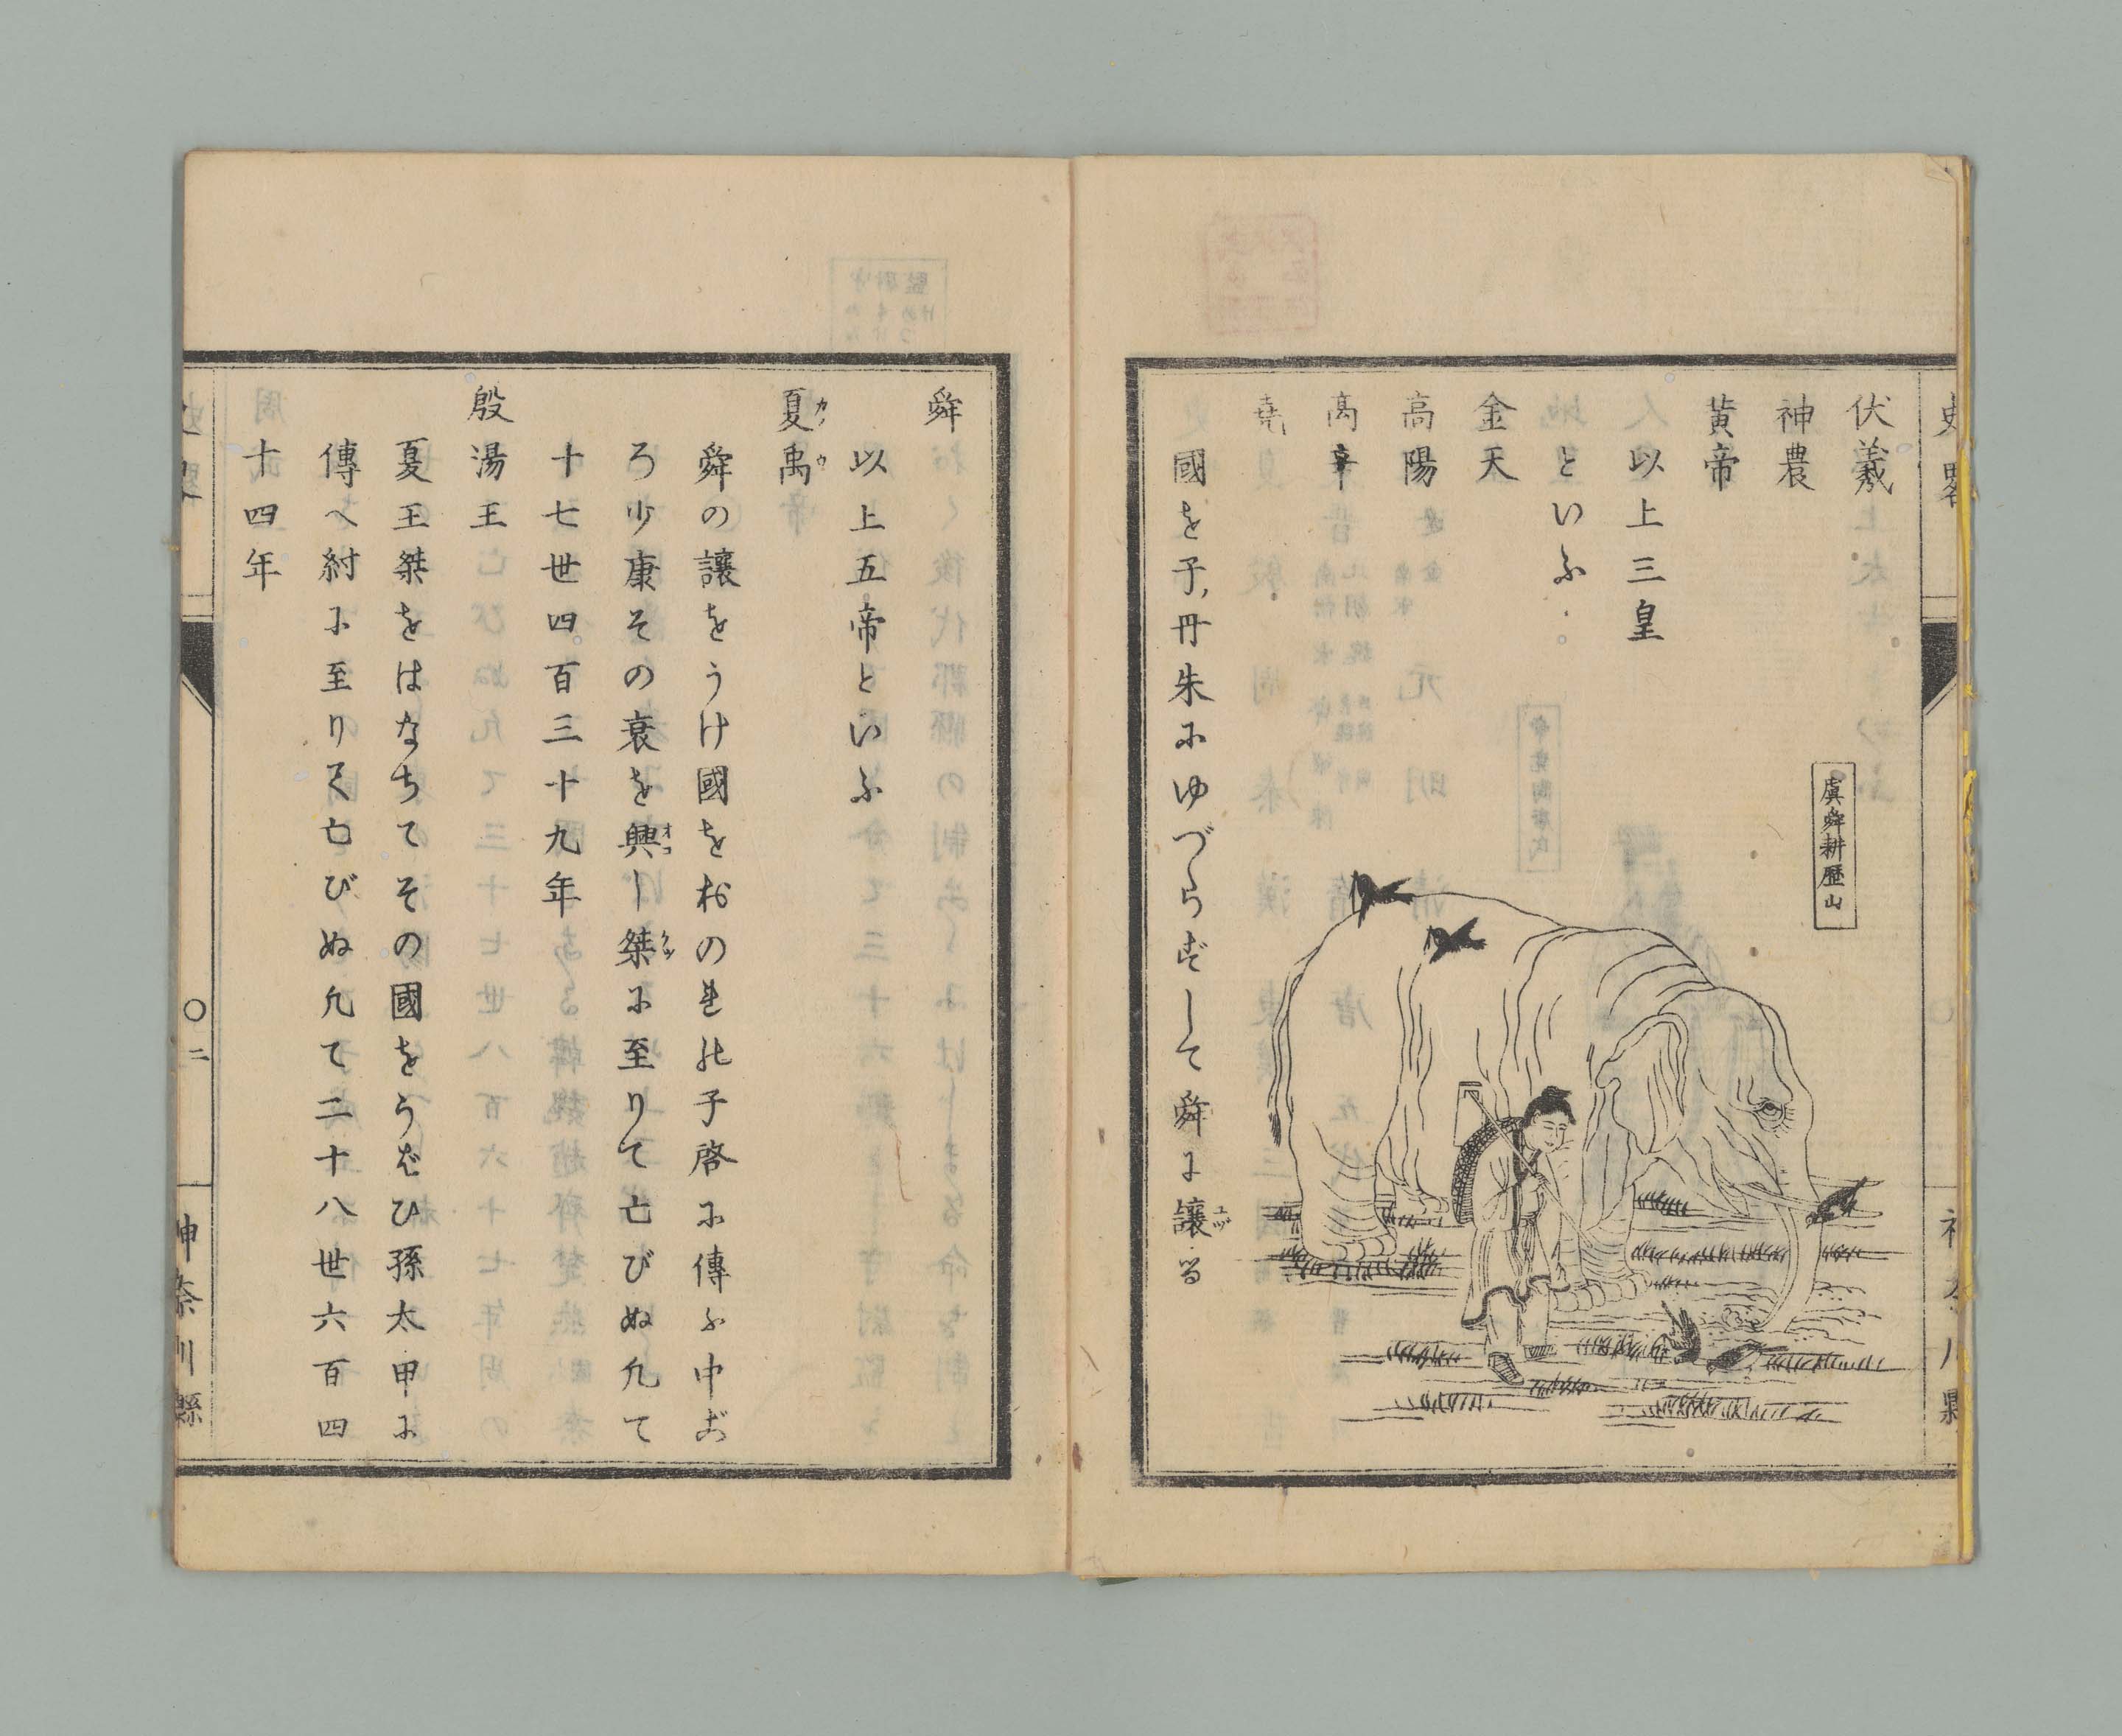 史略
伏羲
神農
黄帝
以上三皇
といふ
金天
高陽
高辛
堯
國を子丹朱にゆづらずして舜に讓る
ユヅ
虞舜耕歷山
神奈川縣
舜
以上五帝といふ
夏禹
カノウ
舜の讓をうけ國をおのれの子啓に傳ふ中ご
ろ少康その衰を興し桀に至りて亡びぬ凡て
オコ
ケツ
十七世四百三十九年
殷湯王
夏王桀をはなちてその國をうばひ孫太甲に
傳へ紂に至りて亡びぬ凡て二十八世六百四
十四年
二
神奈川縣